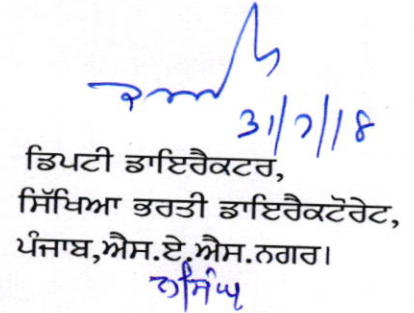 31/7/18
ਡਿਪਟੀ ਡਾਇਰੈਕਟਰ,
ਸਿੱਖਿਆ ਭਰਤੀ ਡਾਇਰੈਕਟੋਰੇਟ,
ਪੰਜਾਬ,ਐਸ.ਏ.ਐਸ.ਨਗਰ।